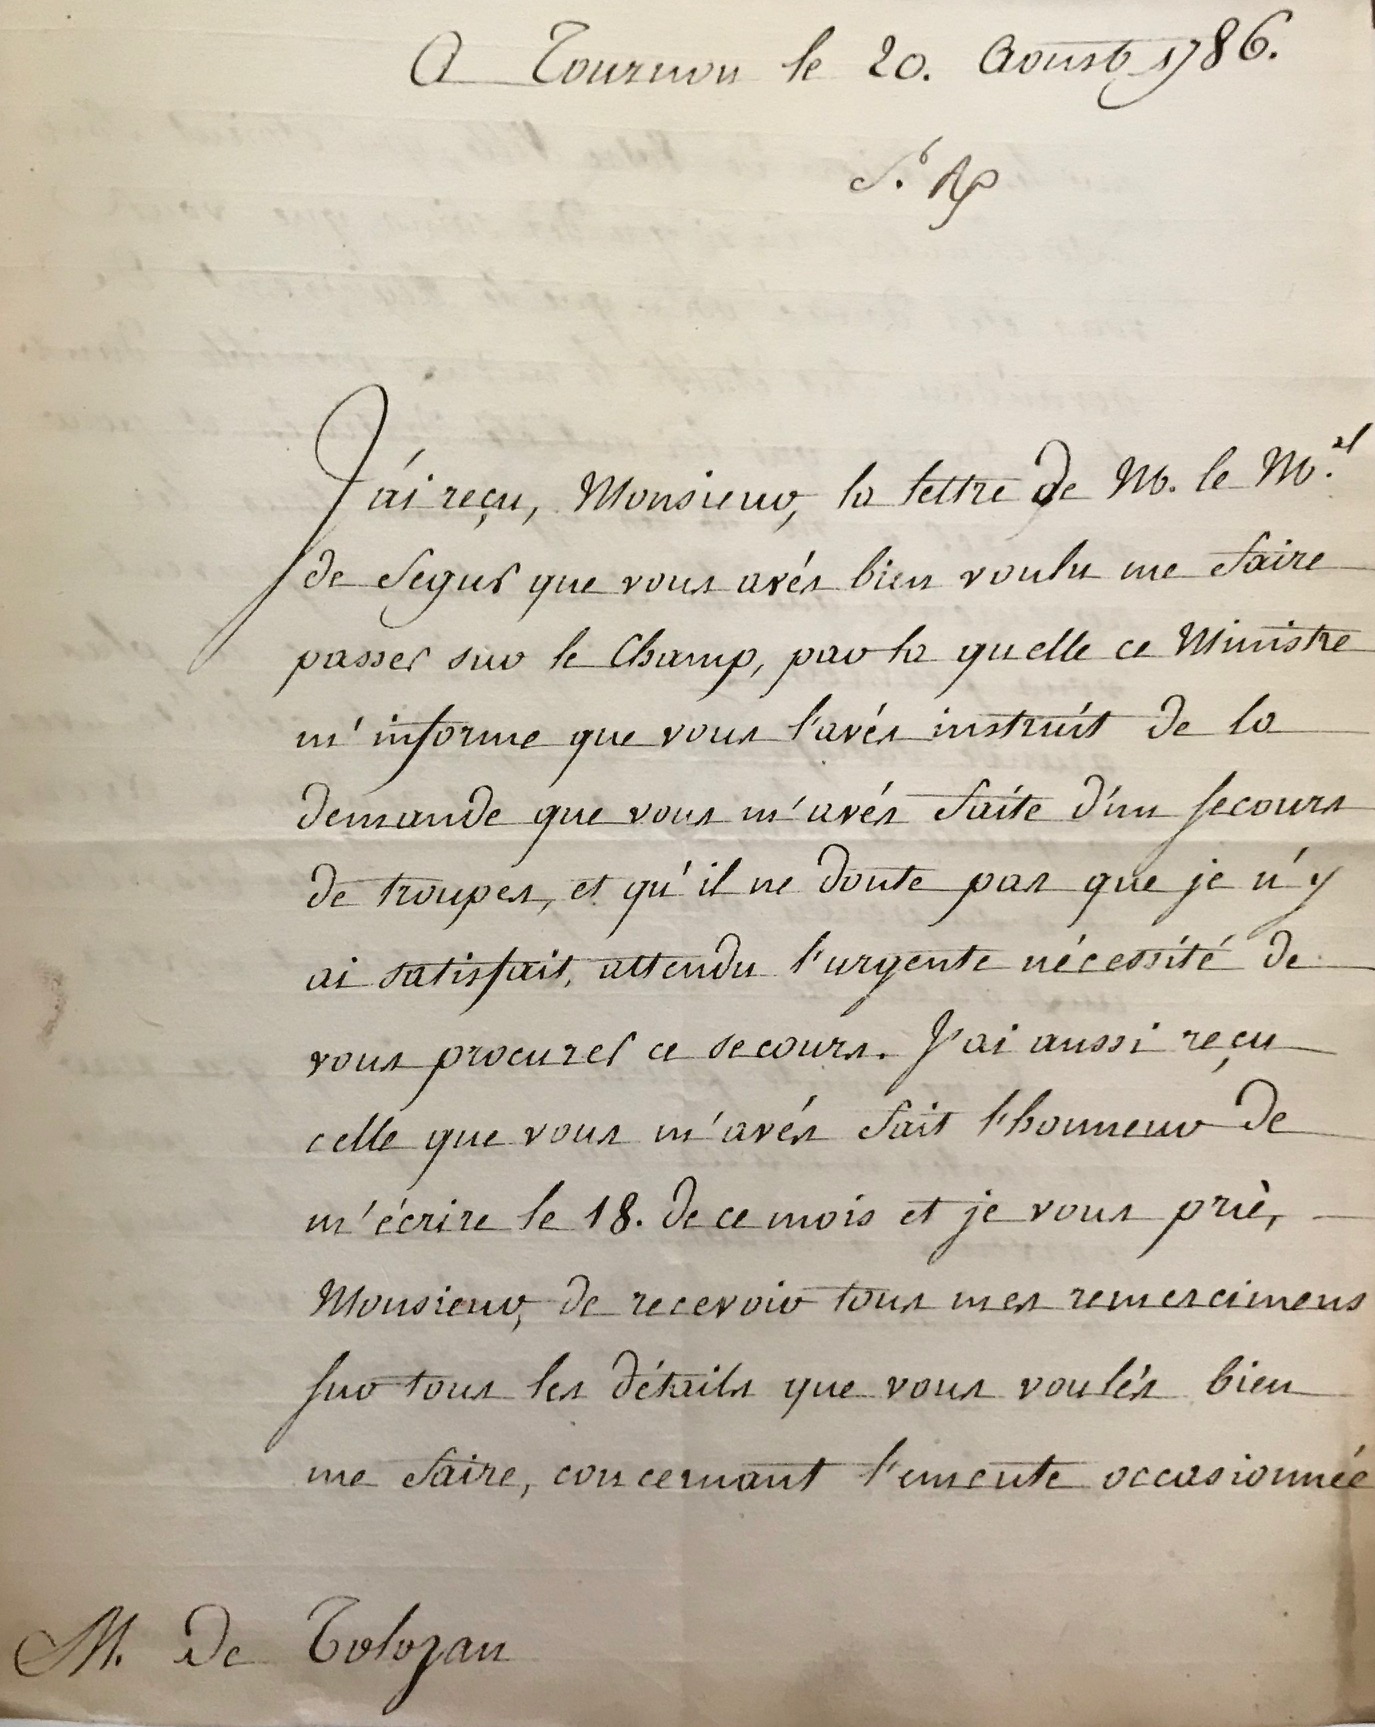 A Tournon le 20. Aoust 1786.
J'ái reçu, Monsieur, la lettre de M. le M.al
de Segur que vous avés bien voulu me faire
passer sur le Champ, par la quelle ce Ministre
m'informe que vous l'avés instruit de la
demande que vous m'avés faite d'un secours
de troupes, et qu'il ne doute pas que je n'y
ai satisfait, attendu l'urgente nécessité de
vous procurer ce secours. J'ai aussi reçu
celle que vous m'avés fait l'honneur de
m'écrire le 18. de ce mois et je vous prie,
Monsieur, de recevoir tous mes remercimens
sur tous les détails que vous voulés bien
me faire, concernant l'emeute occasionnée
M. de Tolozan